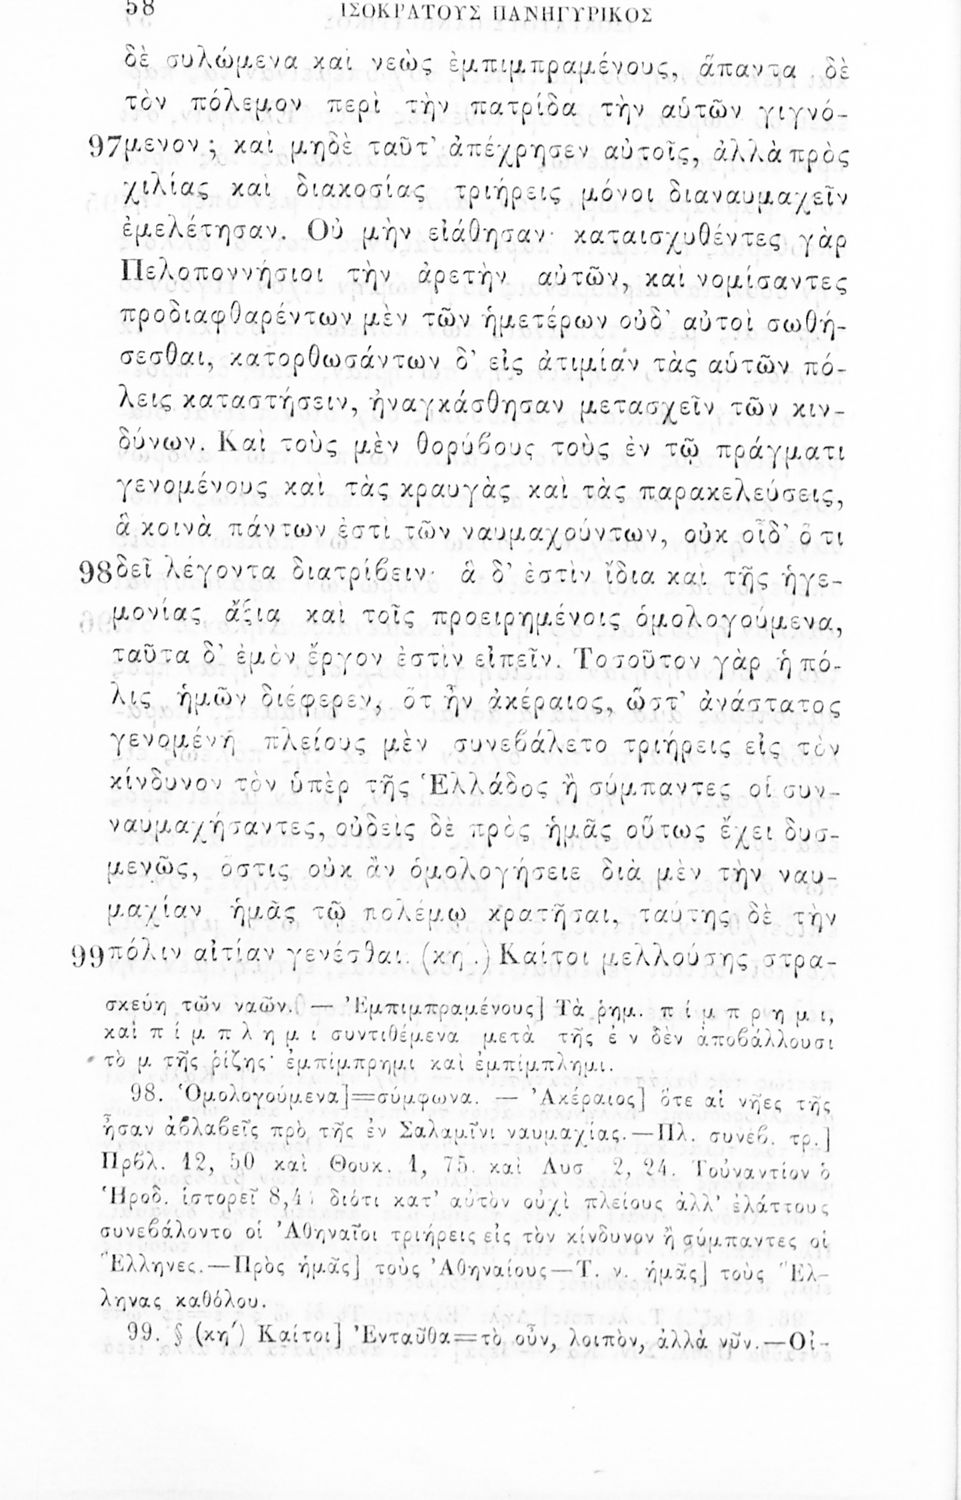 58 ΙΣΟΚΡΑΤΟΥΣ ΠΑΝΗΓΥΡΙΚΟΣ
δὲ συλώμενα καὶ νεὼς ἐμπιμπραμένους, ἅπαντα δὲ
τὸν πόλεμον περὶ τὴν πατρίδα τὴν αὑτῶν γιγνό-
97 μενον; καὶ μηδὲ ταῦτ' ἀπέχρησεν αὐτοῖς, ἀλλὰ πρὸς
χιλίας καὶ διακοσίας τριήρεις μόνοι διαναυμαχεῖν
ἐμελέτησαν. Οὐ μὴν εἰάθησαν· καταισχυθέντες γὰρ
Πελοποννήσιοι τὴν ἀρετὴν αὐτῶν, καὶ νομίσαντες
προδιαφθαρέντων μὲν τῶν ἡμετέρων οὐδ' αὐτοὶ σωθή-
σεσθαι, κατορθωσάντων δ' εἰς ἀτιμίαν τὰς αὑτῶν πό-
λεις καταστήσειν, ἠναγκάσθησαν μετασχεῖν τῶν κιν-
δύνων. Καὶ τοὺς μὲν θορύβους τοὺς ἐν τῷ πράγματι
γενομένους καὶ τὰς κραυγὰς καὶ τὰς παρακελεύσεις,
ἃ κοινὰ πάντων ἐστὶ τῶν ναυμαχούντων, οὐκ οἶδ' ὅ τι
98 δεῖ λέγοντα διατρίβειν· ἃ δ' ἐστὶν ἴδια καὶ τῆς ἡγε-
μονίας ἄξια καὶ τοῖς προειρημένοις ὁμολογούμενα,
ταῦτα δ' ἐμὸν ἔργον ἐστὶν εἰπεῖν. Τοσοῦτον γὰρ ἡ πό-
λις ἡμῶν διέφερεν, ὅτ ἦν ἀκέραιος, ὥστ' ἀνάστατος
γενομένη πλείους μὲν συνεβάλετο τριήρεις εἰς τὸν
κίνδυνον τὸν ὑπὲρ τῆς Ἑλλάδος ἢ σύμπαντες οἱ συν-
ναυμαχήσαντες, οὐδεὶς δὲ πρὸς ἡμᾶς οὕτως ἔχει δυσ-
μενῶς, ὅστις οὐκ ἂν ὁμολογήσειε διὰ μὲν τὴν ναυ-
μαχίαν ἡμᾶς τῷ πολέμῳ κρατῆσαι, ταύτης δὲ τὴν
99 πόλιν αἰτίαν γενέσθαι. (κη΄.) Καίτοι μελλούσης στρα-
σκεύη τῶν ναῶν. — Ἐμπιμπραμένους] Τὰ ῥημ. π ί μ π ρ η μ ι,
καὶ π ί μ π λ η μ ι συντιθέμενα μετὰ τῆς ἐ ν δὲν ἀποβάλλουσι
τὸ μ τῆς ῥίζης· ἐμπίμπρημι καὶ ἐμπίμπλημι.
98. Ὁμολογούμενα]=σύμφωνα. — Ἀκέραιος] ὅτε αἱ νῆες τῆς
ἦσαν ἀβλαβεῖς πρὸ τῆς ἐν Σαλαμῖνι ναυμαχίας.—Πλ. συνέβ. τρ.]
Πρβλ. 12, 50 καὶ Θουκ. 1, 75. καὶ Λυσ 2, 24. Τοὐναντίον ὁ
Ἡροδ. ἱστορεῖ 8,4 διότι κατ' αὐτὸν οὐχὶ πλείους ἀλλ' ἐλάττους
συνεβάλοντο οἱ Ἀθηναῖοι τριήρεις εἰς τὸν κίνδυνον ἢ σύμπαντες οἱ
Ἕλληνες.—Πρὸς ἡμᾶς] τοὺς Ἀθηναίους—Τ. ν. ἡμᾶς] τοὺς Ἕλ-
ληνας καθόλου.
99. § (κη΄) Καίτοι] Ἐνταῦθα=τὸ οὖν, λοιπὸν, ἀλλὰ νῦν.—Οἱ-